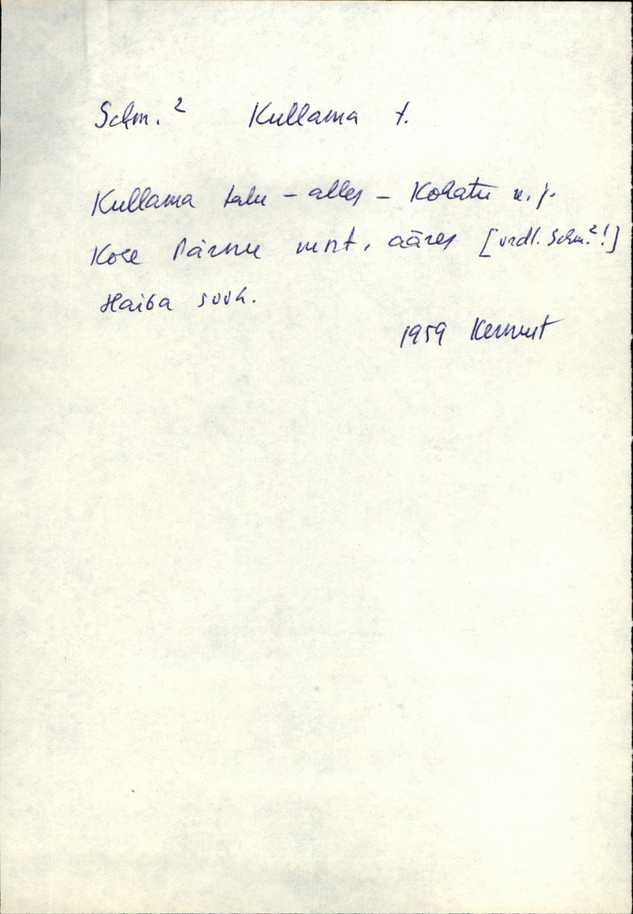 Schm.² Kullama t.
Kullama talu – alles – Kohatu u. j.
Kose Pärnu mnt. ääres [vrdl. Schm.²!]
Haiba sovh.
1959 Kermut